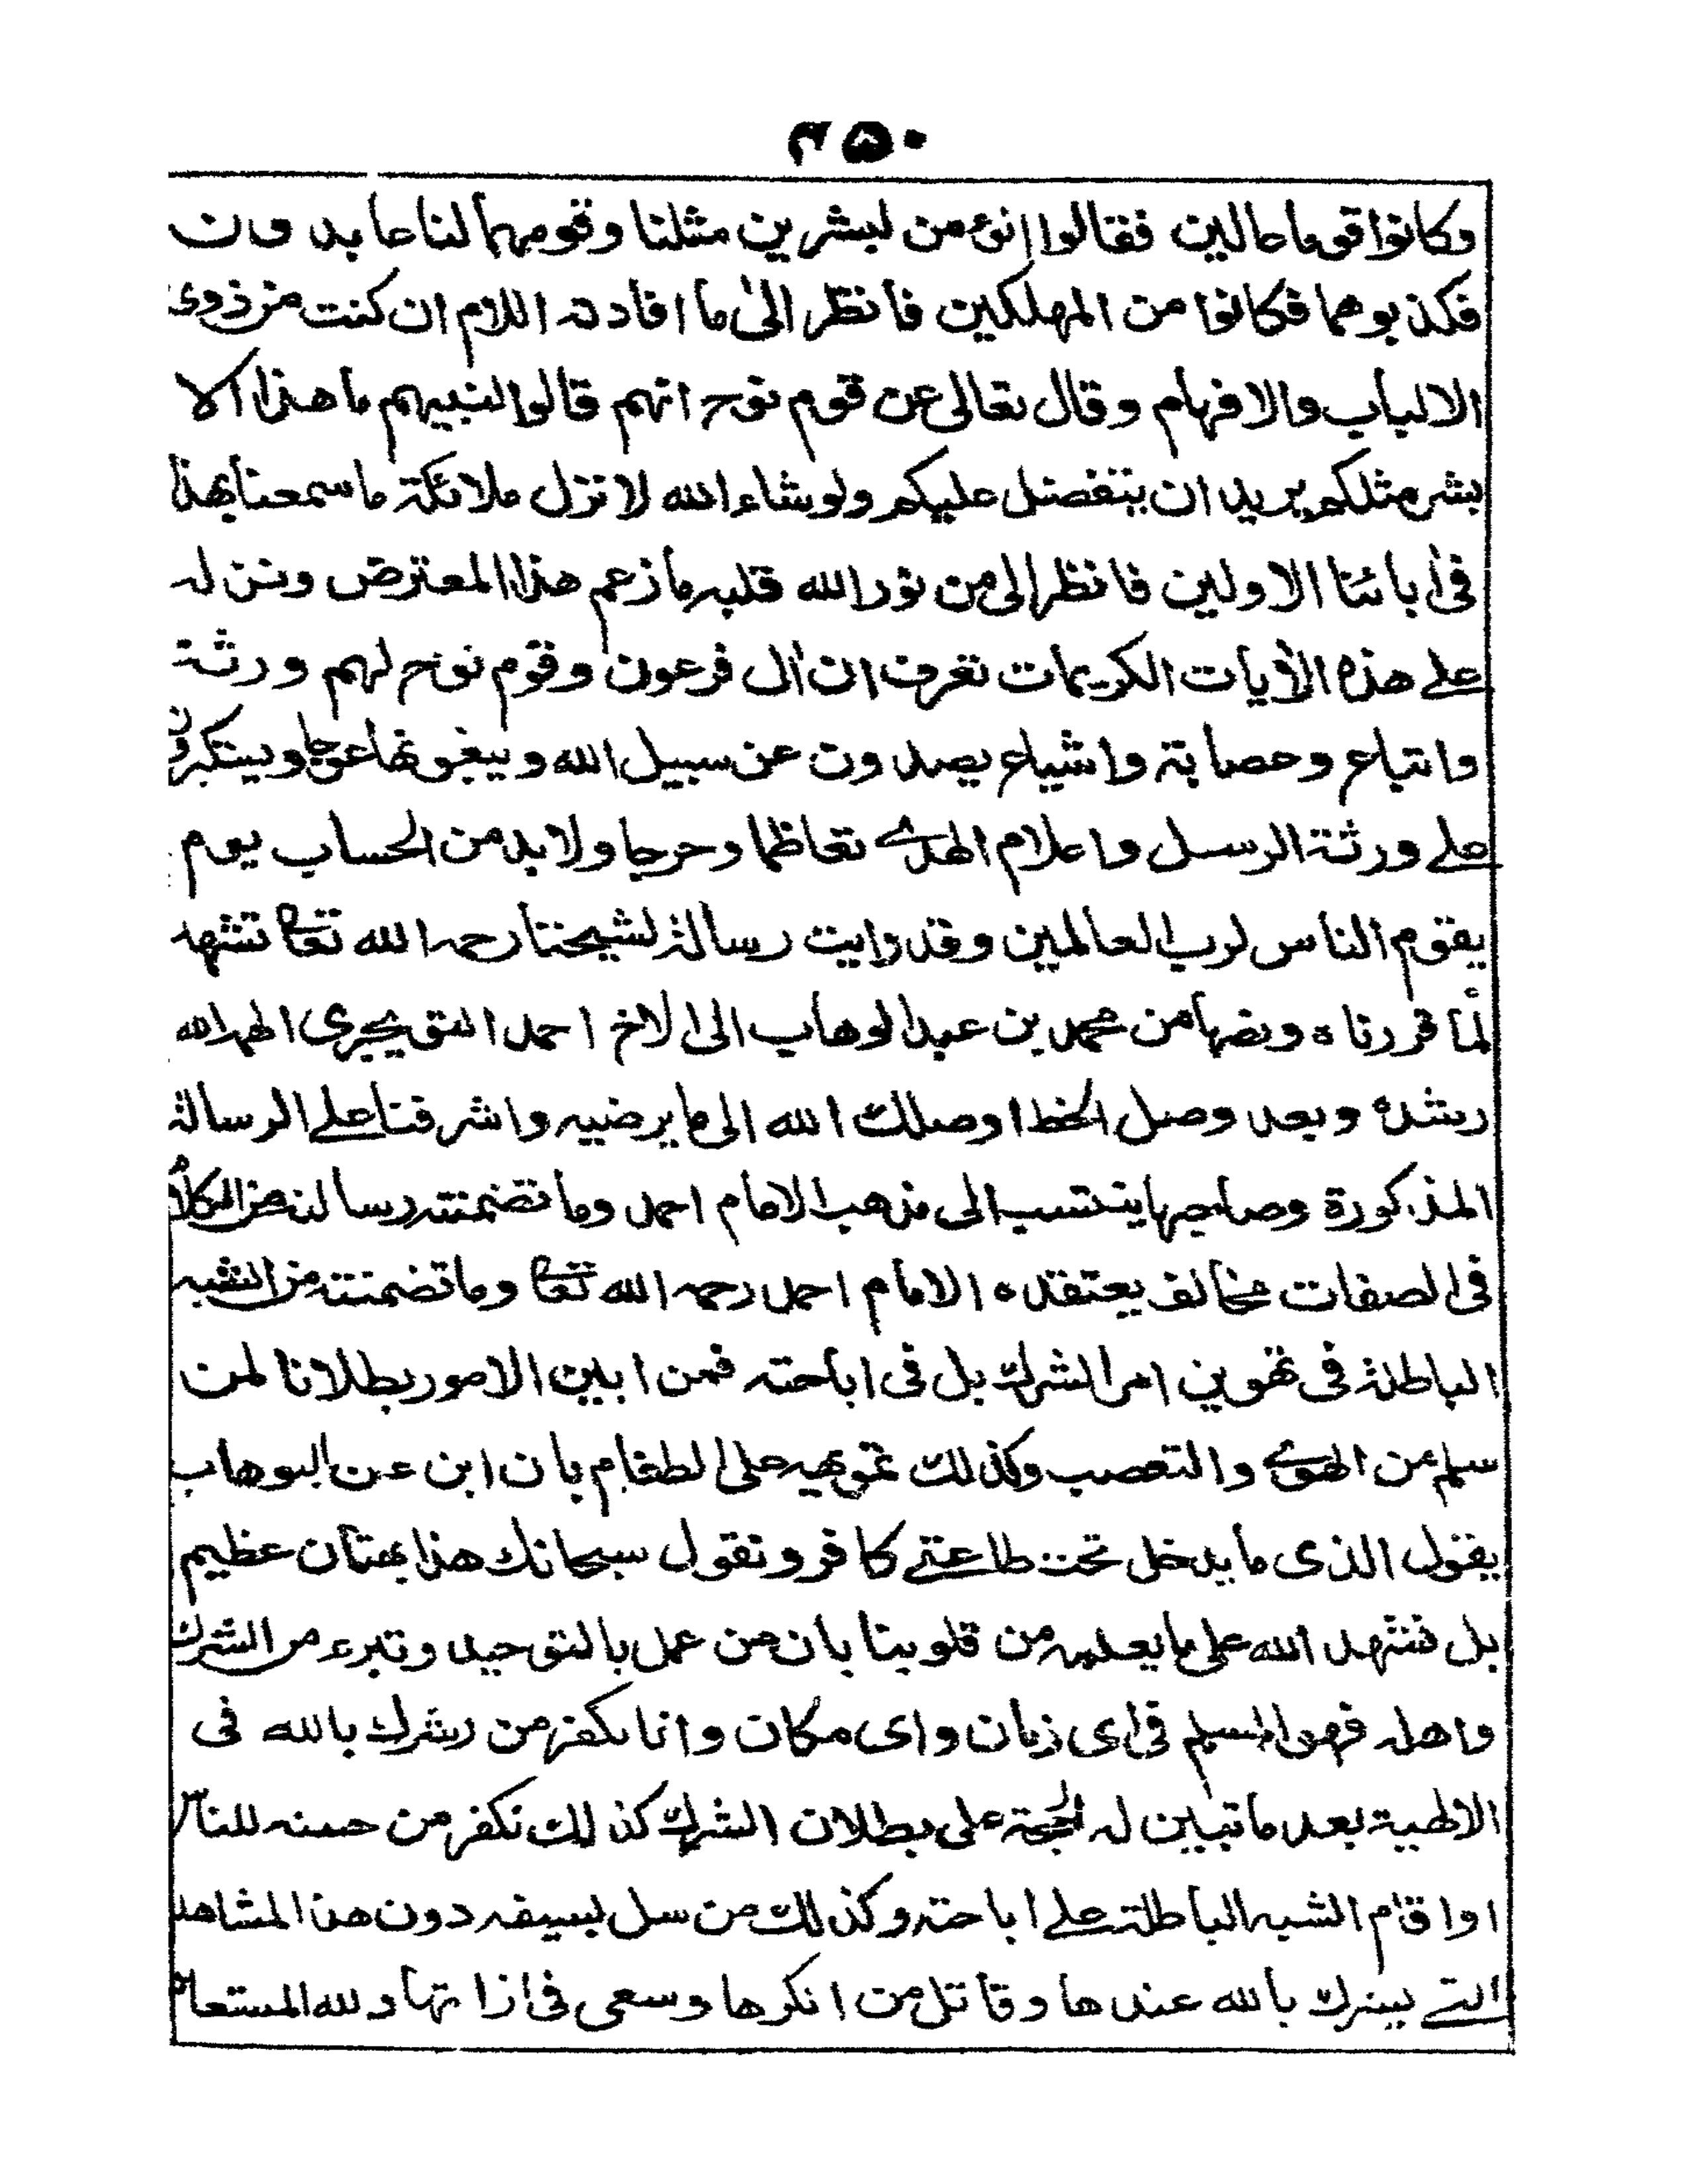 ٢٥٠
وكانوا قوما عالين فقالوا انؤمن لبشرين مثلنا وقومهما لنا عابدون
فكذبوهما فكانوا من المهلكين فانظر الى ما افادته اللام ان كنت من ذوى
الالباب والافهام وقال تعالى عن قوم نوح انهم قالوا لنبيهم ما هذا الا
بشر مثلكم يريد ان يتفضل عليكم ولو شاء الله لانزل ملائكة ما سمعنا بهذا
فى ابائنا الاولين فانظر الى من نور الله قلبه ما زعم هذا المعترض ونزله
على هذه الايات الكريمات تعرف ان ال فرعون وقوم نوح لهم ورثة
واتباع وعصابة واشياع يصدون عن سبيل الله ويبغونها عوجا ويستكبرون
على ورثة الرسل واعلام الهدى تعاظما وحرجا ولا بد من الحساب يوم
يقوم الناس لرب العالمين وقد رايت رسالة لشيخنا رحمه الله تعا تشهد
لما قررناه ونصها من محمد بن عبد الوهاب الى الاخ احمد التويجرى الهمه الله
رشده وبعد وصل الخط اوصلك الله الى ما يرضيه واشرفنا على الرسالة
المذكورة وصاحبها ينتسب الى مذهب الامام احمد وما تضمنته رسالته من الكلام
فى الصفات مخالف يعتقده الامام احمد رحمه الله تعا وما تضمنته من الشبه
الباطلة فى تهوين امر الشرك بل فى اباحته فمن ابين الامور بطلانا لمن
سلم من الهوى والتعصب وكذلك تمويهه على الطغام بان ابن عبد الوهاب
يقول الذى ما يدخل تحت طاعتى كافر ونقول سبحانك هذا بهتان عظيم
بل نشهد الله على ما يعلمه من قلوبنا بان من عمل بالتوحيد وتبرء من الشرك
واهله فهو المسلم فى اى زمان واى مكان وانا نكفر من يشرك بالله فى
الالهية بعد ما تبين له الحجة على بطلان الشرك كذلك نكفر من حسنه للناس
او اقام الشبه الباطلة على اباحته وكذلك من سل بسيفه دون هذا المشاهد
التى يشرك بالله عندها وقاتل من انكرها وسعى فى ازالتها ولله المستعان